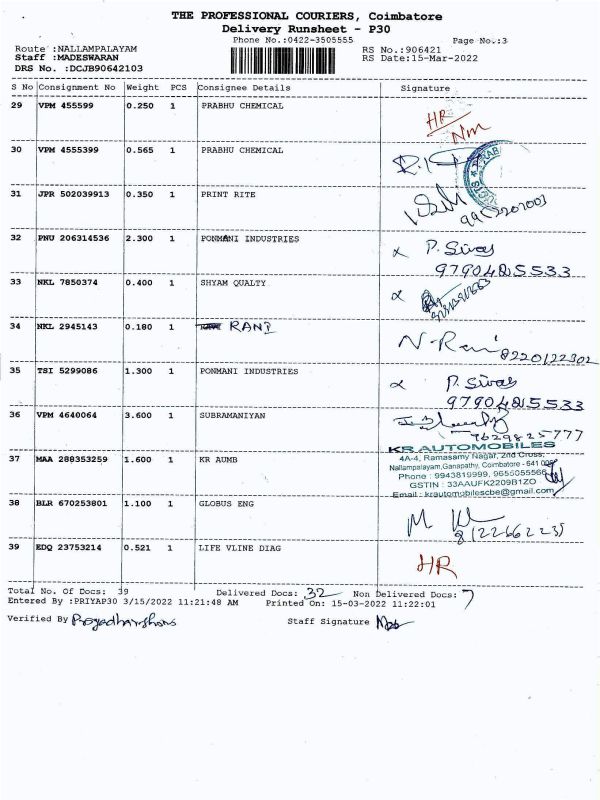 THE PROFESSIONAL COURIERS, Coimbatore
Delivery Runsheet - P30
Phone No.:0422-3505555
Page No.:3
Route :NALLAMPALAYAM
RS No.:906421
Staff :MADESWARAN
RS Date:15-Mar-2022
DRS No. :DCJB90642103
S No Consignment No Weight PCS Consignee Details Signature
29 VPM 455599 0.250 1 PRABHU CHEMICAL
HR
Nm
30 VPM 4555399 0.565 1 PRABHU CHEMICAL
31 JPR 502039913 0.350 1 PRINT RITE
32 PNU 206314536 2.300 1 PONMANI INDUSTRIES
P. Sivas
9790485533
33 NKL 7850374 0.400 1 SHYAM QUALTY
34 NKL 2945143 0.180 1 RANI
N-Rani 8220122302
35 TSI 5299086 1.300 1 PONMANI INDUSTRIES
P. Sivas
9790485533
36 VPM 4640064 3.600 1 SUBRAMANIYAN
9629825777
KR AUTOMOBILES
37 MAA 288353259 1.600 1 KR AUMB
4A-4, Ramasamy Nagar, 2nd Cross,
Nallampalayam,Ganapathy, Coimbatore - 641 006
Phone : 9943819999, 9655055566
GSTIN : 33AAUFK2209B1ZO
Email : krautomobilescbe@gmail.com
38 BLR 670253801 1.100 1 GLOBUS ENG
39 EDQ 23753214 0.521 1 LIFE VLINE DIAG
HR
Total No. Of Docs: 39 Delivered Docs: 32 Non Delivered Docs: 7
Entered By :PRIYAP30 3/15/2022 11:21:48 AM Printed On: 15-03-2022 11:22:01
Verified By Staff Signature